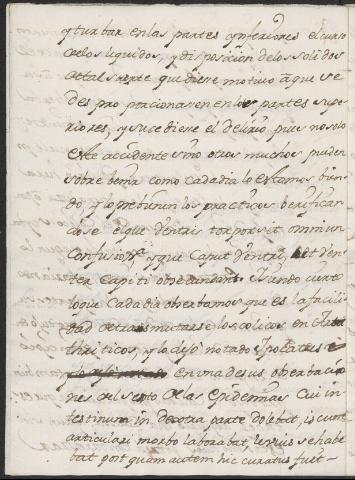 y turbar en las partes ynferiores el curso
de los liquidos, y disposicion de los solidos
de tal suerte que diese motivo à que se
desproporcionasen en las partes supe
riores, y sucediese el delirio, pues no solo
este accidente sino otros muchos pueden
sobrebenir como cada dia lo estamos bien
do y lo prebienen los practicos berifican
dose el que dentris torpor sit omnium
confusio, y que Caput dentri, et den
ter capiti obsecundant. Siendo cierto
lo que cada dia obserbamos que es la facili
dad de transmutarse los colicos en Ar
thriticos, y lo dejó notado Ipocrates
en una de sus obserbacio
nes del sexto de las epidemias Cui in
testinum in dextra parte dolebat, is cum
articulari morbo laborabat, lenius se habe
bat postquam autem hic curatus fuit